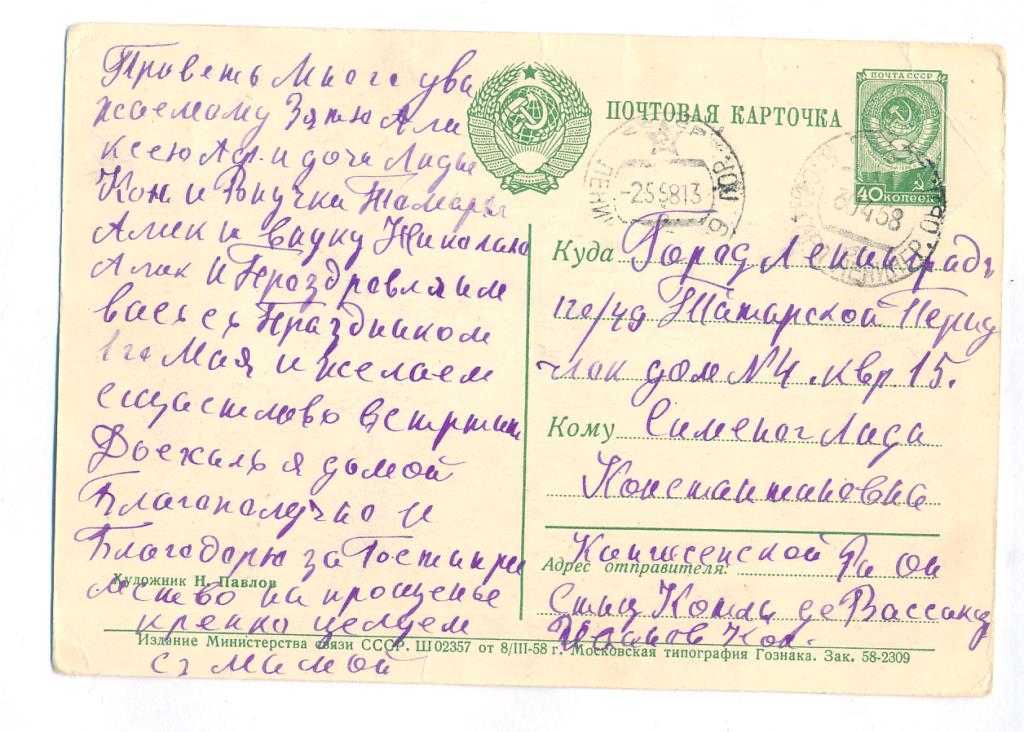 Приветь Много ува
жаемому Зятю Але
ксею Аф. и дочи Лидые
Кон и Внучки Тамары
Алек и внуку Николаю
Алек и Праздравляим
васьсъ Праздником
1 го Мая и желаем
сщастлово встртит
Доехаль я домой
Благаполучно и
Благодарю за Гостипри
мство на прощенье
крепко целуем
съ Мамой
Художник Н. Павлов
ПОЧТОВАЯ КАРТОЧКА
ПОЧТА СССР
40 КОПЕЕК
-25 58 13
30 4 58
Куда Горад Ленинградъ
Татарской Периу
лок дом №4. квр 15.
Кому Сименог Лида
Константиновна
Адрес отправителя: Кингисепской Ра он
Станц Котлы де Вассакар
Кон.
Издание Министерства связи СССР. Ш 02357 от 8/III-58 г. Московская типография Гознака. Зак. 58-2309